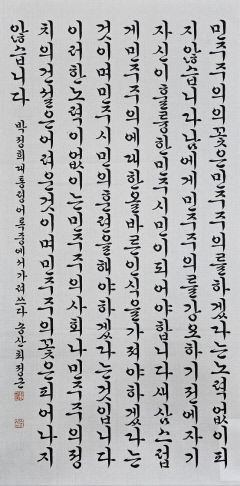 민주주의의 꽃은 노력 없이 피
지 않습니다 남에게 민주주의를 강요하기 전에 자기
자신이 훌륭한 민주시민이 되어야 합니다 새삼스럽
게 민주주의에 대한 올바른 인식을 가져야 하겠다는
것이며 민주시민의 훈련을 해야 하겠다는 것입니다
이러한 노력이 없이는 민주주의 사회나 민주주의 정
치의 건설은 어려울 것이며 민주주의의 꽃은 피어나지
않습니다
박정희 대통령 어록 중에서 가려 쓰다 송산 최정근